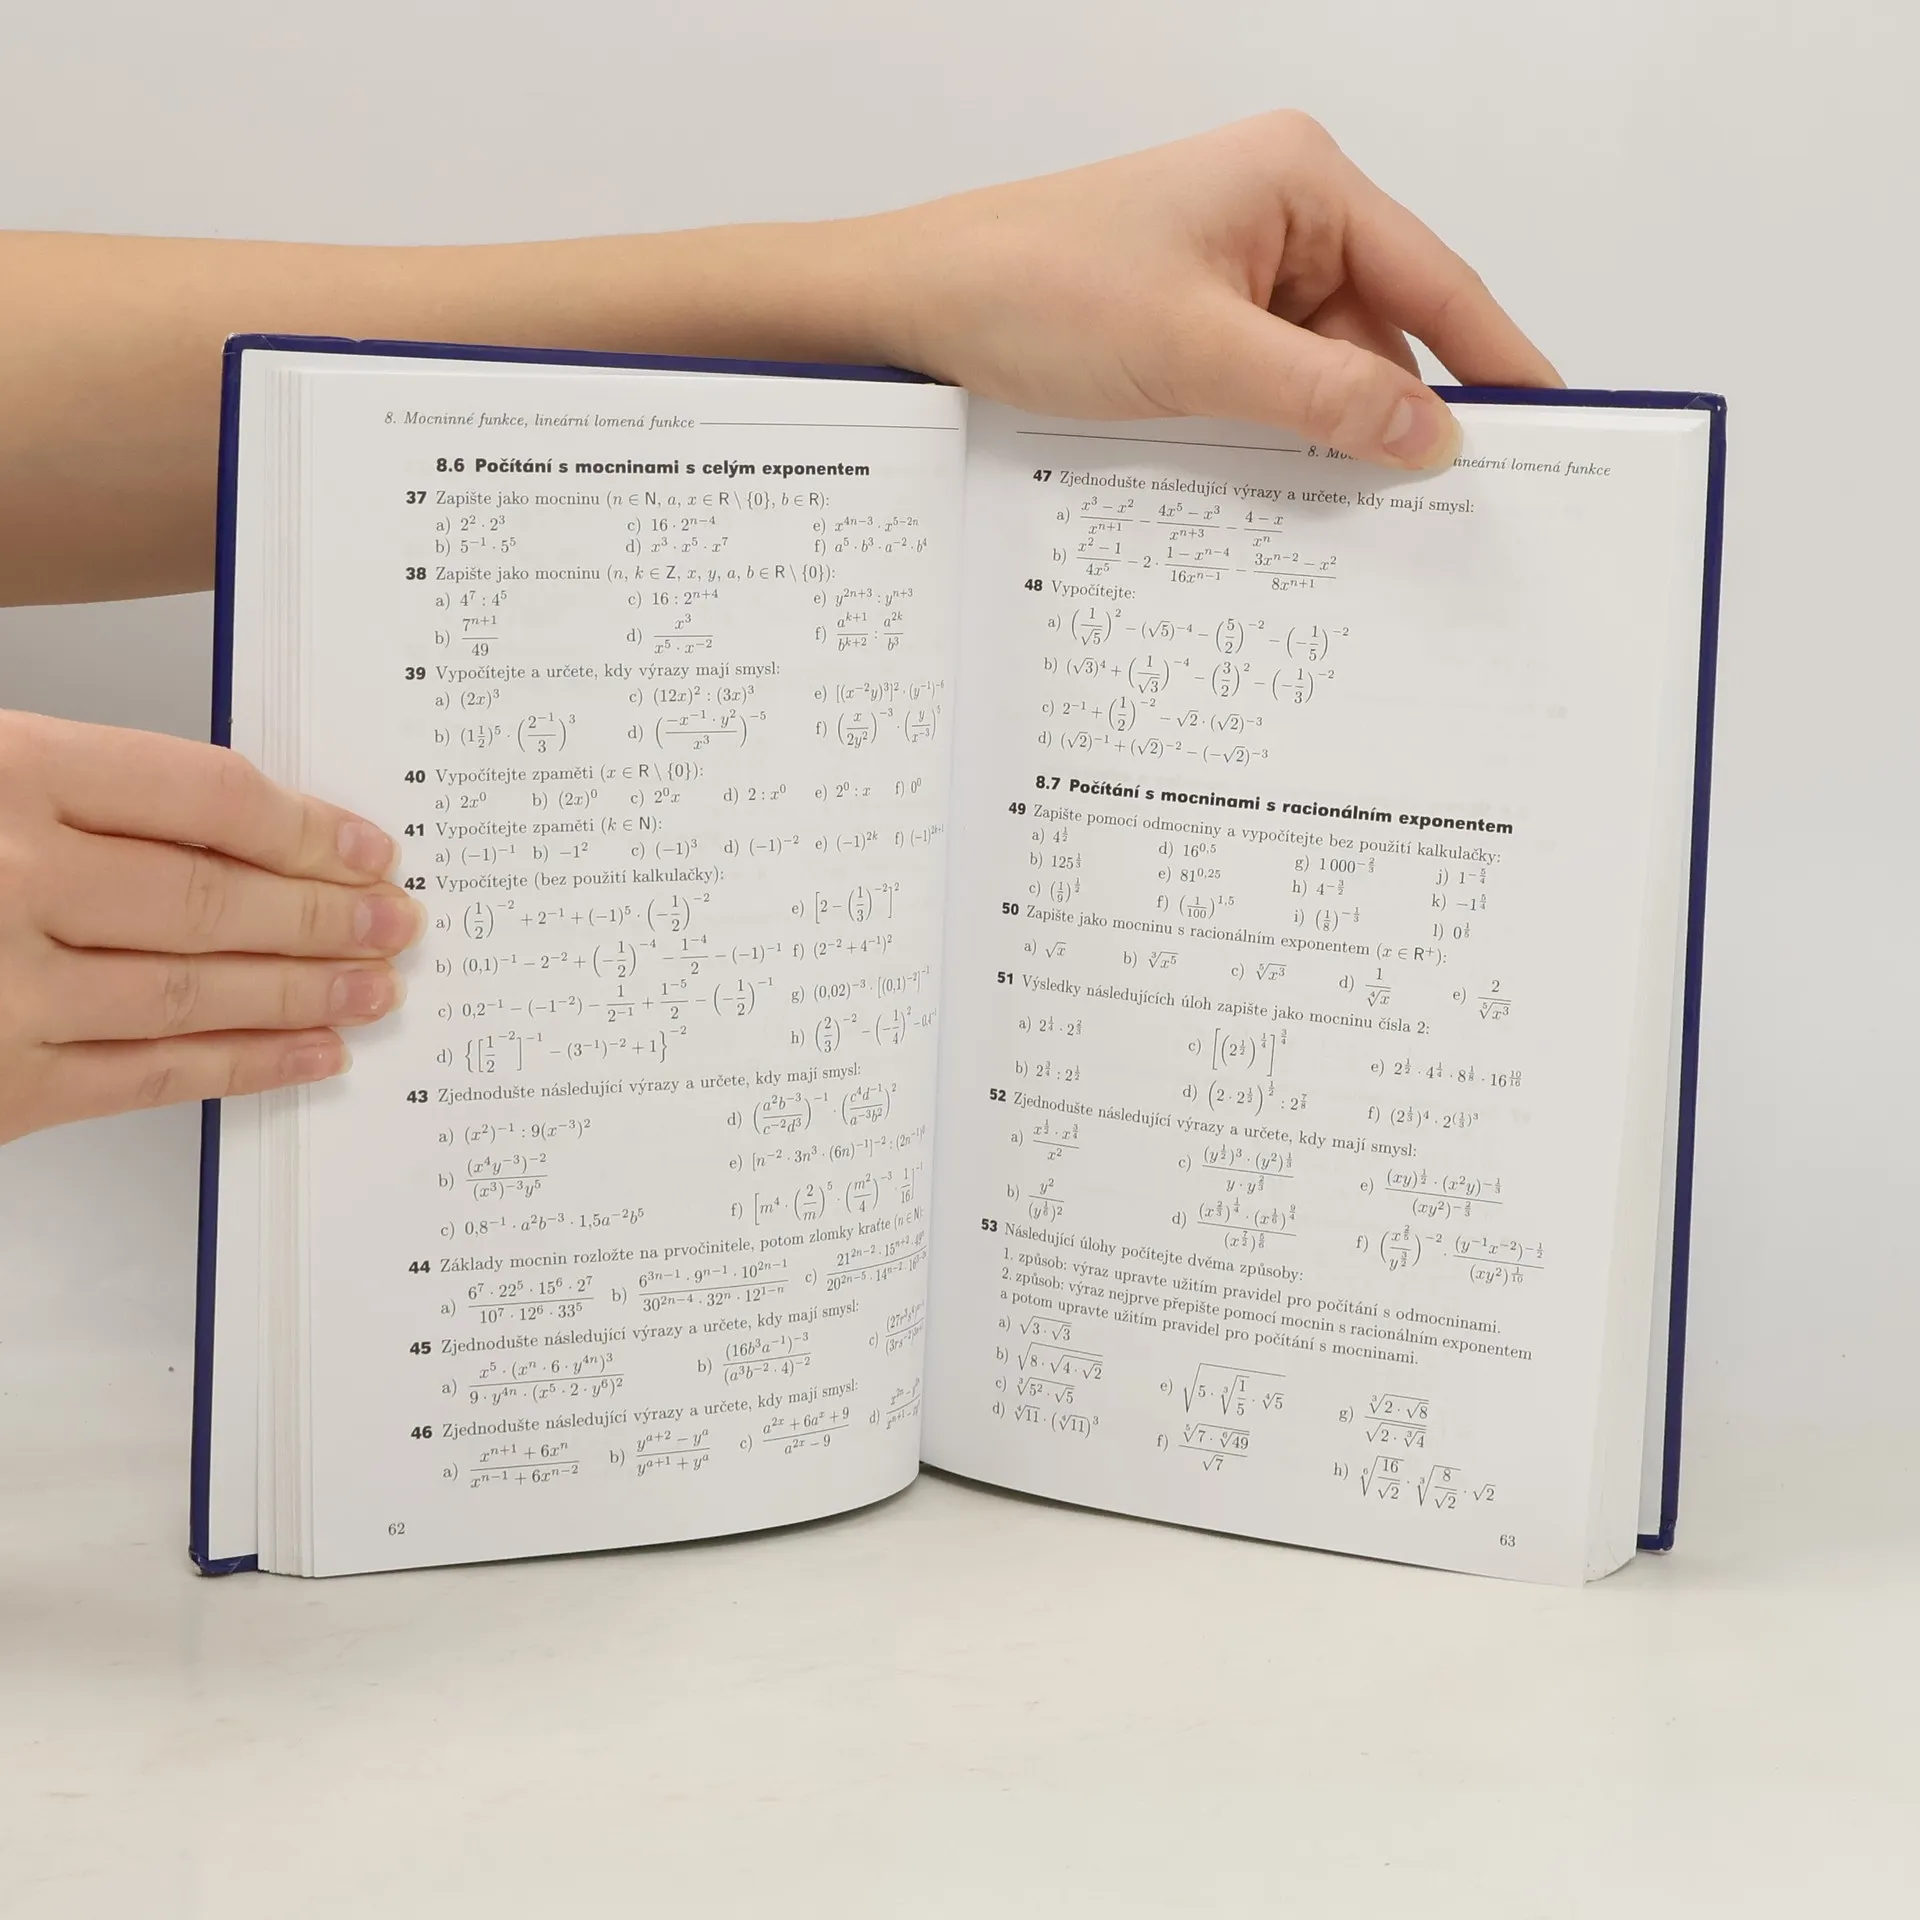 8. Mocninné funkce, lineární lomená funkce
8.6 Počítání s mocninami s celým exponentem
37 Zapište jako mocninu (n ∈ N, a, x ∈ R \ {0}, b ∈ R):
a) 2² · 2³ c) 16 · 2ⁿ⁻⁴ e) x⁴ⁿ⁻³ · x⁵⁻²ⁿ
b) 5⁻¹ · 5⁵ d) x³ · x⁵ · x⁷ f) a⁵ · b³ · a⁻² · b⁴
38 Zapište jako mocninu (n, k ∈ Z, x, y, a, b ∈ R \ {0}):
a) 4⁷ : 4⁵ c) 16 : 2ⁿ⁺⁴ e) y²ⁿ⁺³ : yⁿ⁺³
b) 7ⁿ⁺¹/49 d) x³/(x⁵ · x⁻²) f) aᵏ⁺¹/bᵏ⁺² : a²ᵏ/b³
39 Vypočítejte a určete, kdy výrazy mají smysl:
a) (2x)³ c) (12x)² : (3x)³ e) [(x⁻²y)³]² · (y⁻¹)⁻⁶
b) (1½)⁵ · (2⁻¹/3)³ d) ((−x⁻¹ · y²)/x³)⁻⁵ f) (x/2y²)⁻³ · (y/x⁻³)⁵
40 Vypočítejte zpaměti (x ∈ R \ {0}):
a) 2x⁰ b) (2x)⁰ c) 2⁰x d) 2 : x⁰ e) 2⁰ : x f) 0⁰
41 Vypočítejte zpaměti (k ∈ N):
a) (−1)⁻¹ b) −1² c) (−1)³ d) (−1)⁻² e) (−1)²ᵏ f) (−1)²ᵏ⁺¹
42 Vypočítejte (bez použití kalkulačky):
a) (1/2)⁻² + 2⁻¹ + (−1)⁵ · (−1/2)⁻² e) [2 − (1/3)⁻²]²
b) (0,1)⁻¹ − 2⁻² + (−1/2)⁻⁴ − 1⁻⁴/2 − (−1)⁻¹ f) (2⁻² + 4⁻¹)²
c) 0,2⁻¹ − (−1⁻²) − 1/2⁻¹ + 1⁻⁵/2 − (−1/2)⁻¹ g) (0,02)⁻³ · [(0,1)⁻²]⁻¹
d) {[1/2⁻²]⁻¹ − (3⁻¹)⁻² + 1}⁻² h) (2/3)⁻² − (−1/4)² − 0,4⁻¹
43 Zjednodušte následující výrazy a určete, kdy mají smysl:
a) (x²)⁻¹ : 9(x⁻³)² d) (a²b⁻³/c⁻²d³)⁻¹ · (c⁴d⁻¹/a⁻³b²)²
b) (x⁴y⁻³)⁻²/(x³)⁻³y⁵ e) [n⁻² · 3n³ · (6n)⁻¹]⁻² : (2n⁻¹)⁰
c) 0,8⁻¹ · a²b⁻³ · 1,5a⁻²b⁵ f) [m⁴ · (2/m)⁵ · (m²/4)⁻³ · 1/16]⁻¹
44 Základy mocnin rozložte na prvočinitele, potom zlomky kraťte (n ∈ N):
a) (6⁷ · 22⁵ · 15⁶ · 2⁷)/(10⁷ · 12⁶ · 33⁵) b) (6³ⁿ⁻¹ · 9ⁿ⁻¹ · 10²ⁿ⁻¹)/(30²ⁿ⁻⁴ · 32ⁿ · 12¹⁻ⁿ) c)
45 Zjednodušte následující výrazy a určete, kdy mají smysl:
a) (x⁵ · (xⁿ · 6 · y⁴ⁿ)³)/(9 · y⁴ⁿ · (x⁵ · 2 · y⁶)²) b) (16b³a⁻¹)⁻³/(a³b⁻² · 4)⁻² c)
46 Zjednodušte následující výrazy a určete, kdy mají smysl:
a) (xⁿ⁺¹ + 6xⁿ)/(xⁿ⁻¹ + 6xⁿ⁻²) b) (yᵃ⁺² − yᵃ)/(yᵃ⁺¹ + yᵃ) c) (a²ˣ + 6aˣ + 9)/(a²ˣ − 9) d)
62
8. lineární lomená funkce
47 Zjednodušte následující výrazy a určete, kdy mají smysl:
a) (x³ − x²)/xⁿ⁺¹ − (4x⁵ − x³)/xⁿ⁺³ − (4 − x)/xⁿ
b) (x² − 1)/4x⁵ − 2 · (1 − xⁿ⁻⁴)/16xⁿ⁻¹ − (3xⁿ⁻² − x²)/8xⁿ⁺¹
48 Vypočítejte:
a) (1/√5)² − (√5)⁻⁴ − (5/2)⁻² − (−1/5)⁻²
b) (√3)⁴ + (1/√3)⁻⁴ − (3/2)² − (−1/3)⁻²
c) 2⁻¹ + (1/2)⁻² − √2 · (√2)⁻³
d) (√2)⁻¹ + (√2)⁻² − (−√2)⁻³
8.7 Počítání s mocninami s racionálním exponentem
49 Zapište pomocí odmocniny a vypočítejte bez použití kalkulačky:
a) 4^(1/2) d) 16^0,5 g) 1 000^(−2/3) j) 1^(−5/4)
b) 125^(1/3) e) 81^0,25 h) 4^(−3/2) k) −1^(5/4)
c) (1/9)^(1/2) f) (1/100)^1,5 i) (1/8)^(−1/3) l) 0^(1/5)
50 Zapište jako mocninu s racionálním exponentem (x ∈ R⁺):
a) √x b) ∛x⁵ c) ⁵√x³ d) 1/⁴√x e) 2/⁵√x³
51 Výsledky následujících úloh zapište jako mocninu čísla 2:
a) 2^(1/4) · 2^(2/3) c) [(2^(1/2))^(1/4)]^(3/4) e) 2^(1/2) · 4^(1/4) · 8^(1/8) · 16^(10/16)
b) 2^(3/4) : 2^(1/2) d) (2 · 2^(1/2))^(1/2) : 2^(7/8) f) (2^(1/3))⁴ · 2^((1/3)³)
52 Zjednodušte následující výrazy a určete, kdy mají smysl:
a) (x^(1/2) · x^(3/4))/x² c) ((y^(1/2))³ · (y²)^(1/3))/(y · y^(2/3)) e) ((xy)^(1/2) · (x²y)^(−1/3))/(xy²)^(−2/3)
b) y²/(y^(1/6))² d) ((x^(2/3))^(1/4) · (x^(1/6))^(9/4))/(x^(7/2))^(5/6) f) (x^(2/5)/y^(3/2))⁻² · (y⁻¹x⁻²)^(−1/2)/(xy²)^(1/10)
53 Následující úlohy počítejte dvěma způsoby:
1. způsob: výraz upravte užitím pravidel pro počítání s odmocninami.
2. způsob: výraz nejprve přepište pomocí mocnin s racionálním exponentem
a potom upravte užitím pravidel pro počítání s mocninami.
a) √(3 · √3)
b) √(8 · √(4 · √2)) e) √(5 · ∛(1/5 · ⁴√5)) g) ∛(2 · √8)/√(2 · ∛4)
c) ∛(5² · √5)
d) ⁴√11 · (⁴√11)³ f) ⁵√(7 · ⁶√49)/√7 h) ⁶√(16/√2) · ∛(8/√2) · √2
63